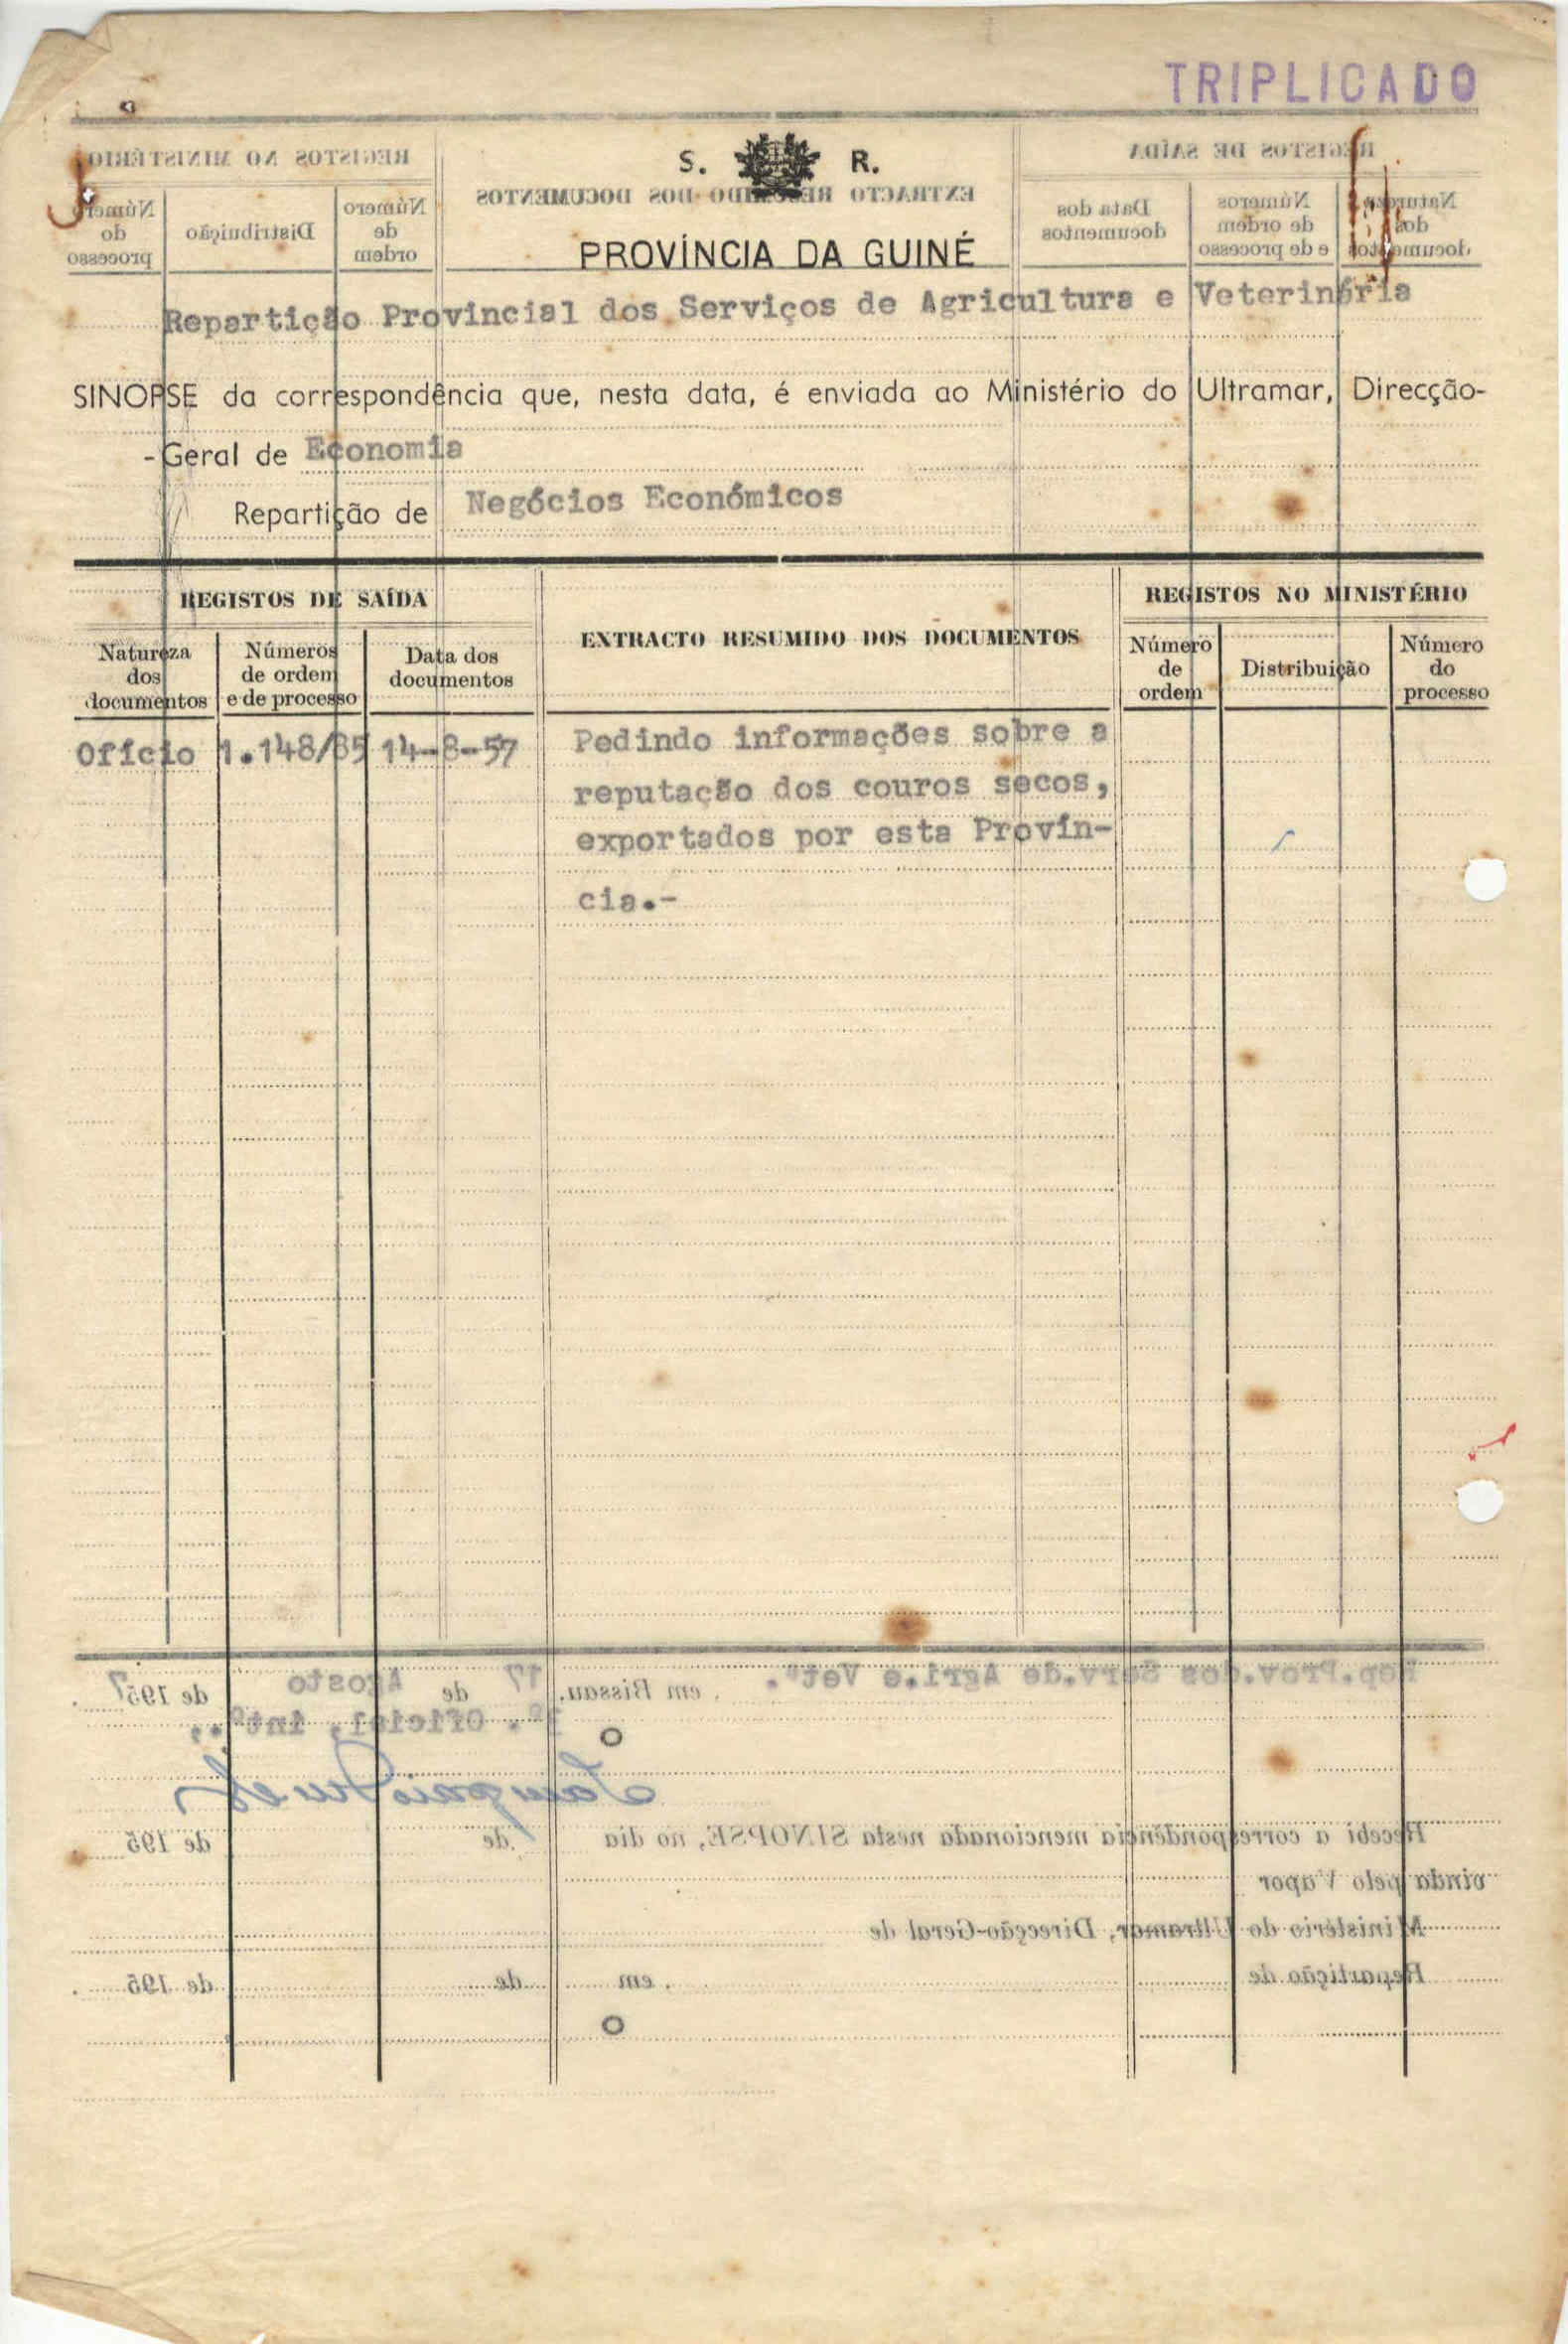 TRIPLICADO
S. R.
PROVÍNCIA DA GUINÉ
Repartição Provincial dos Serviços de Agricultura e Veterinária
SINOPSE da correspondência que, nesta data, é enviada ao Ministério do Ultramar, Direcção-
-Geral de Economia
Repartição de Negócios Económicos
REGISTOS DE SAÍDA
EXTRACTO RESUMIDO DOS DOCUMENTOS
REGISTOS NO MINISTÉRIO
Natureza dos documentos
Números de ordem e de processo
Data dos documentos
Número de ordem
Distribuição
Número do processo
Ofício 1.148/85 14-8-57 Pedindo informações sobre a
reputação dos couros secos,
exportados por esta Provín-
cia.-
Rep.Prov.dos Serv.de Agri.e Vetª. , em Bissau, 17 de Agosto de 1957.
O
Recebi a correspondência mencionada nesta SINOPSE, no dia de de 195
vinda pelo Vapor
Ministério do Ultramar, Direcção-Geral de
Repartição de , em de de 195 .
O